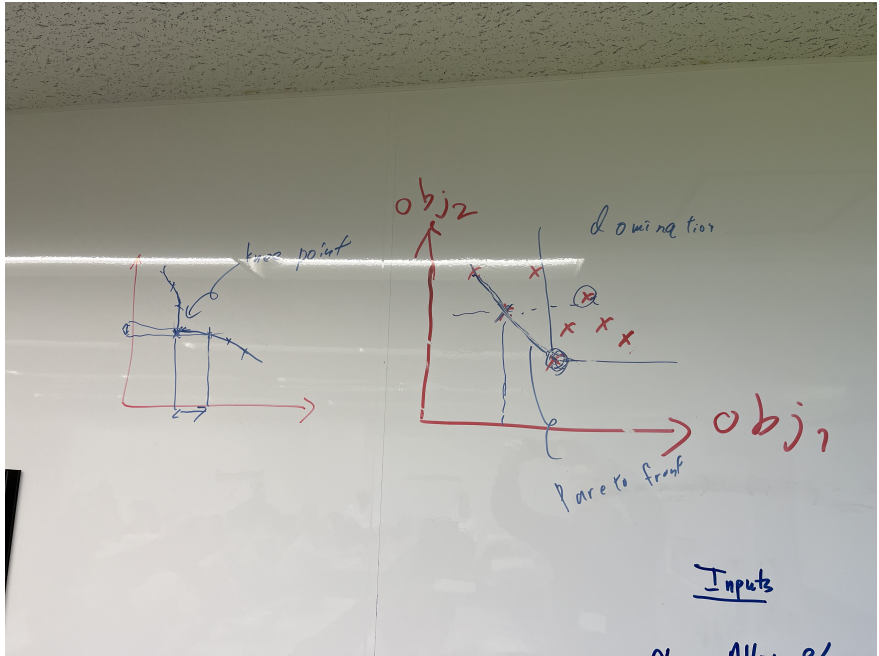 knee point
obj2
domination
obj1
Pareto front
Inputs